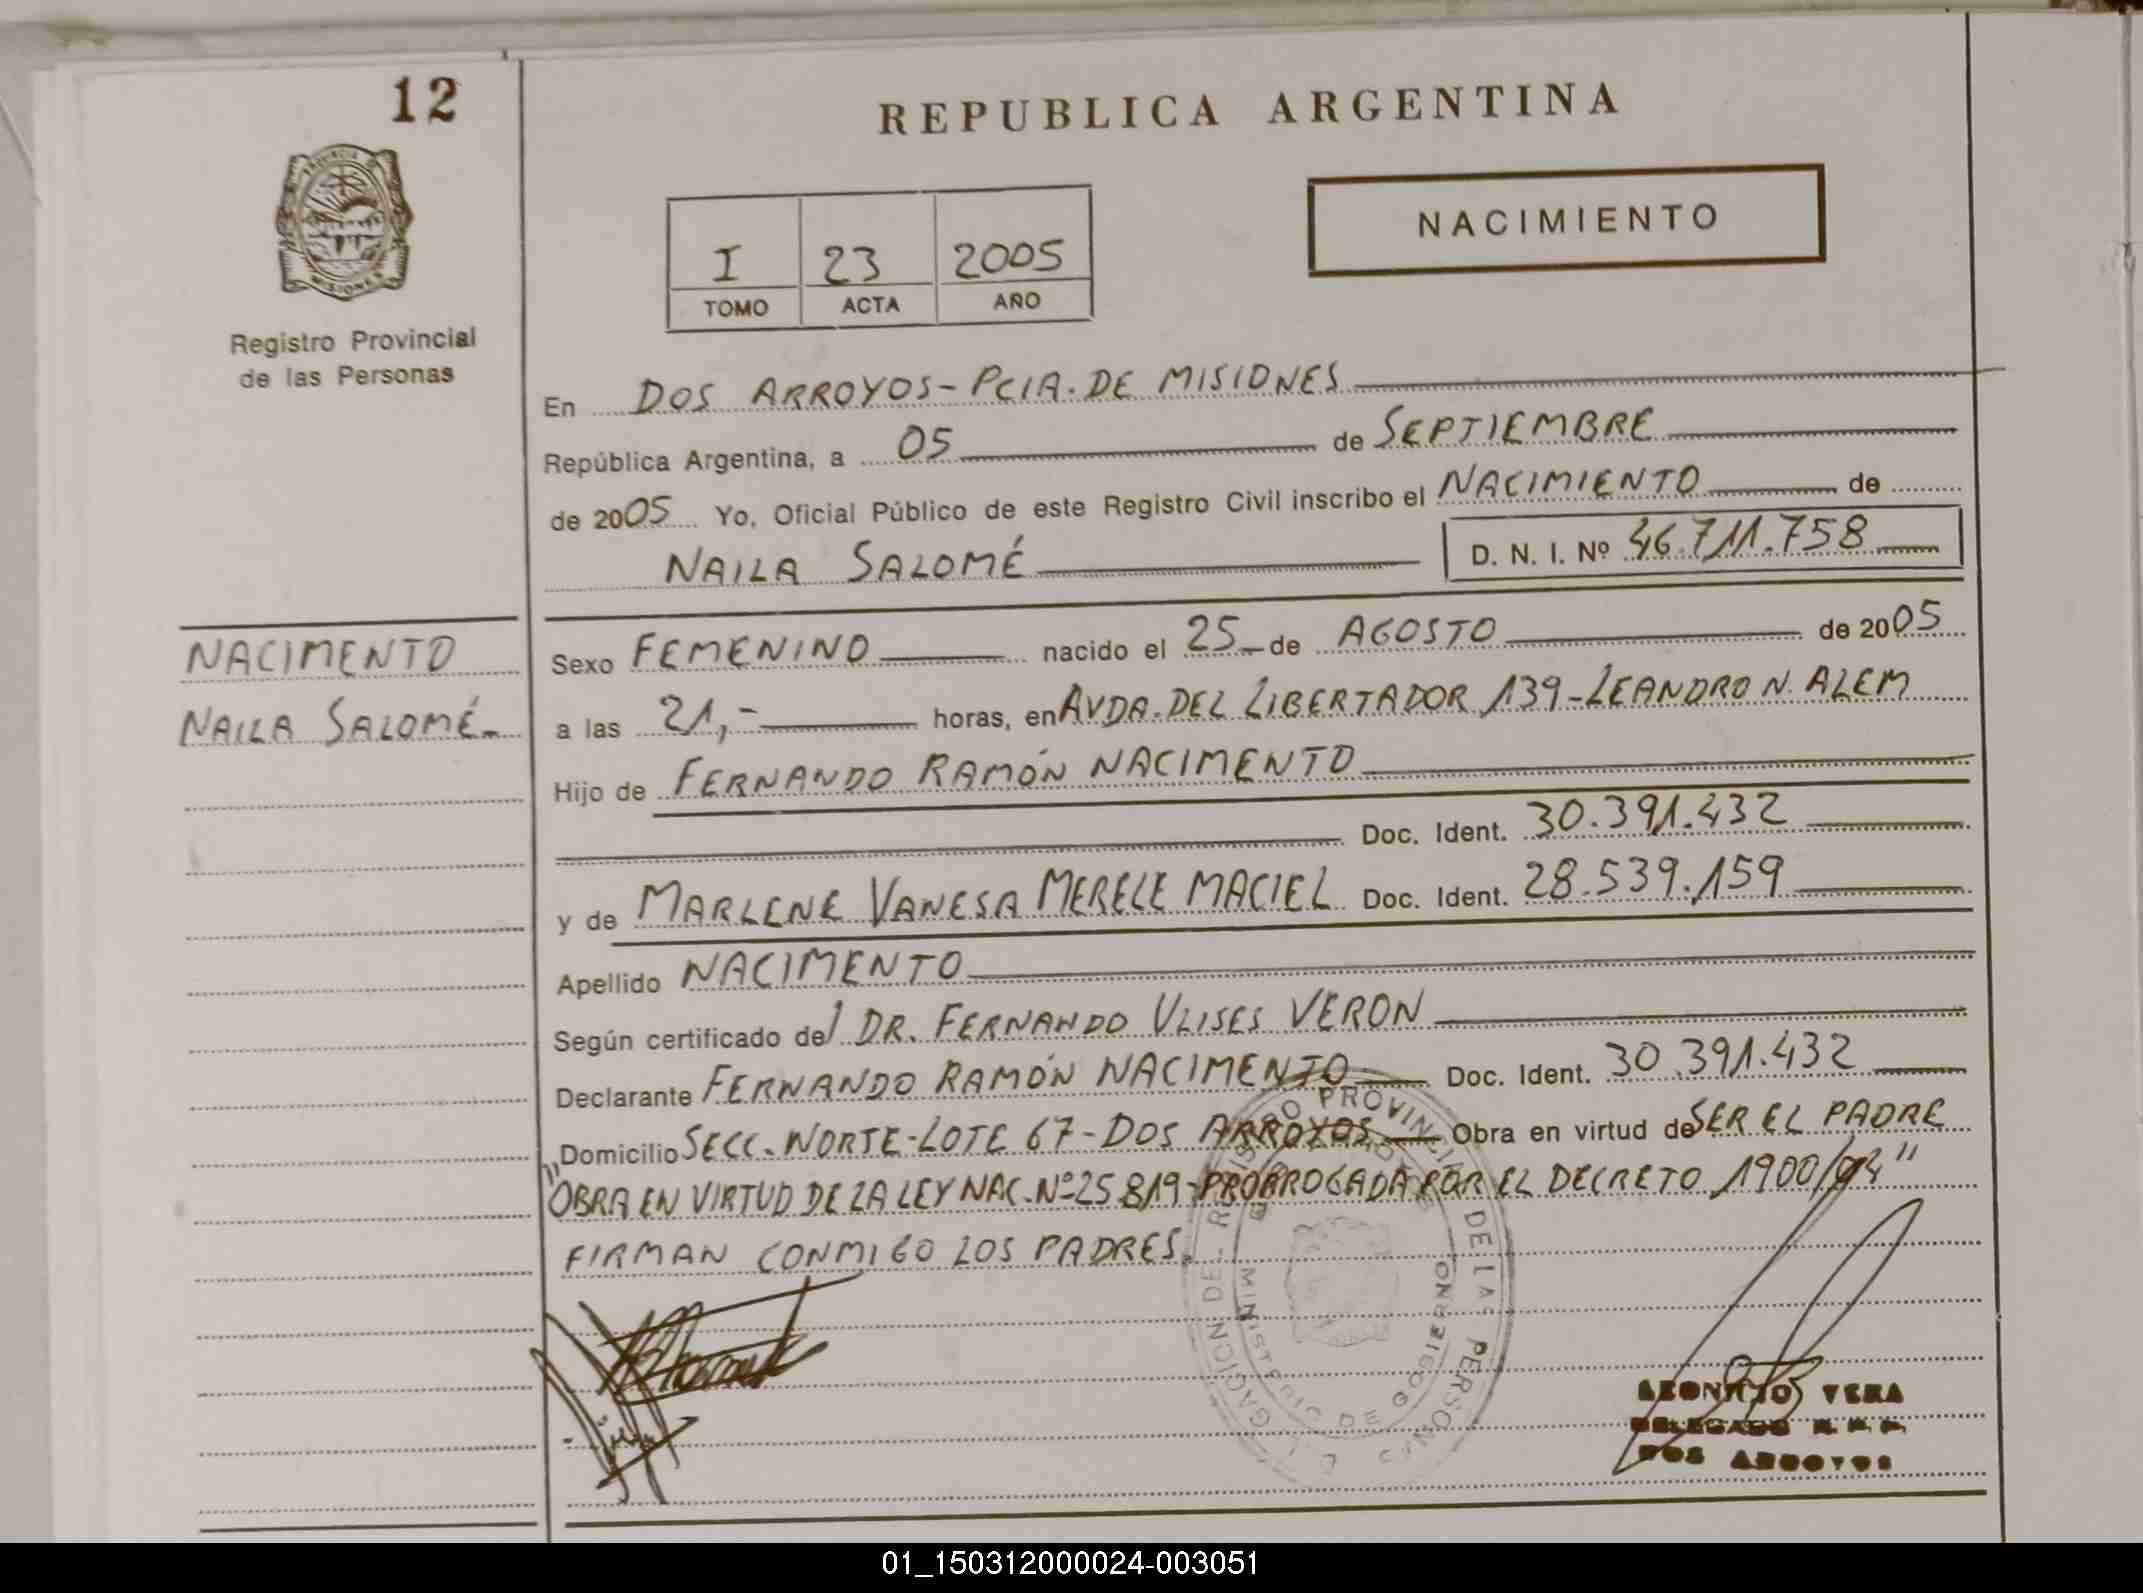 12
REPUBLICA ARGENTINA
NACIMIENTO
I 23 2005
TOMO ACTA AÑO
PROVINCIA D MISIONES
Registro Provincial
de las Personas
En DOS ARROYOS- PCIA. DE MISIONES
República Argentina, a 05 de SEPTIEMBRE
de 2005 Yo, Oficial Público de este Registro Civil inscribo el NACIMIENTO de
NAILA SALOMÉ D. N. I. Nº 46.711.758
NACIMENTO
NAILA SALOMÉ-
Sexo FEMENINO nacido el 25 de AGOSTO de 2005
a las 21,- horas, en AVDA. DEL LIBERTADOR 139-LEANDRO N. ALEM
Hijo de FERNANDO RAMÓN NACIMENTO
Doc. Ident. 30.391.432
y de MARLENE VANESA MERELE MACIEL Doc. Ident. 28.539.159
Apellido NACIMENTO
Según certificado del DR. FERNANDO ULISES VERON
Declarante FERNANDO RAMÓN NACIMENTO Doc. Ident. 30.391.432
Domicilio SECC. NORTE-LOTE 67-DOS ARROYOS Obra en virtud de SER EL PADRE
"OBRA EN VIRTUD DE LA LEY NAC. Nº 25819-PRORROGADA POR EL DECRETO 1900/04"
FIRMAN CONMIGO LOS PADRES.
REGISTRO PROVINCIAL DE LAS PERSONAS
MINISTERIO DE GOBIERNO
LEONICIO VERA
DELEGADO R. P. P.
DOS ARROYOS
01_150312000024-003051